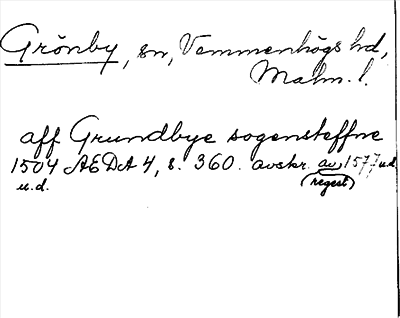 Grönby, sn, Vemmenhögs hd,
Malm. l.
aff Grundbye sogensteffne
1504 AEDA 4, s. 360. avskr. av 1577 u.d.
(regest)
u.d.